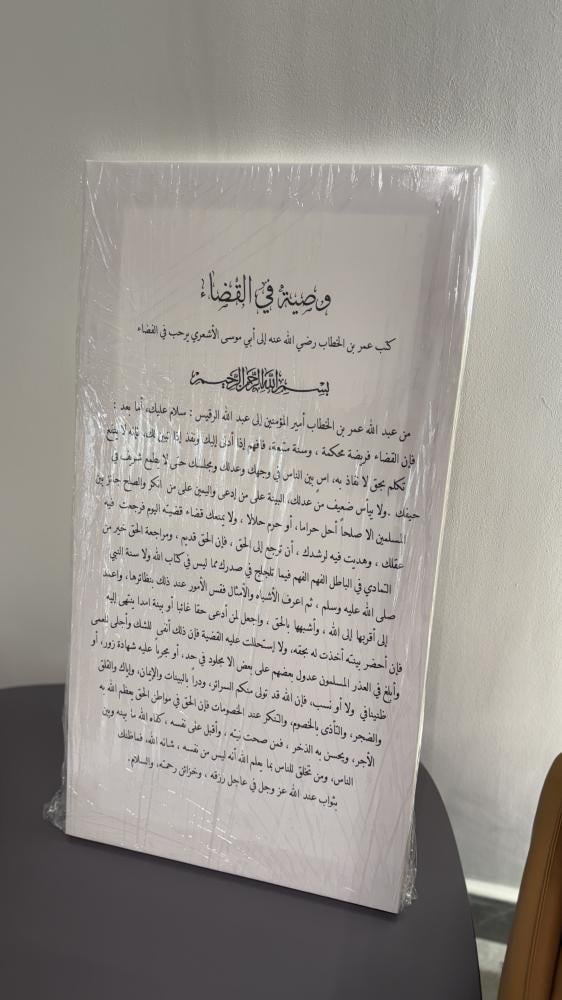 وصية في القضاء
كتب عمر بن الخطاب رضي الله عنه إلى أبي موسى الأشعري يرحب في القضاء
بسم الله الرحمن الرحيم
من عبد الله عمر بن الخطاب أمير المؤمنين إلى عبد الله الرقيس : سلام عليك، أما بعد :
فإن القضاء فريضة محكمة ، وسنة متبعة، فافهم إذا أدلى إليك ونفذ إذا تبين لك، فإنه لا ينفع
تكلم بحق لا نفاذ به، اس بين الناس في وجهك وعدلك ومجلسك حتى لا يطمع شريف في
حيفك . ولا ييأس ضعيف من عدلك، البينة على من إدعى واليمين على من أنكر والصلح جائز بين
المسلمين الا صلحاً أحل حراما، أو حرم حلالا ، ولا يمنعك قضاء قضيته اليوم فرجعت فيه
عقلك ، وهديت فيه لرشدك ، أن ترجع إلى الحق ، فإن الحق قديم ، ومراجعة الحق خير من
التمادي في الباطل الفهم الفهم فيما تلجلج في صدرك مما ليس في كتاب الله ولا سنة النبي
صلى الله عليه وسلم ، ثم اعرف الأشباه والأمثال فقس الأمور عند ذلك بنظائرها، واعمد
إلى أقربها إلى الله ، وأشبهها بالحق ، واجعل لمن أدعى حقا غائبا أو بينة امدا ينتهى إليه
فإن أحضر بينته أخذت له بحقه، ولا إستحللت عليه القضية فإن ذلك أنفى للشك وأجلى للعمى
وأبلغ في العذر المسلمون عدول بعضهم على بعض الا مجلود في حد، أو مجربا عليه شهادة زور، أو
ظنينا في ولا أو نسب، فإن الله قد تولى منكم السرائر، ودرأ بالبينات والإيمان، وإياك والقلق
والضجر، والتأذى بالخصوم، والتنكر عند الخصومات فإن الحق في مواطن الحق يعظم الله به
الأجر، ويحسن به الذخر ، فمن صحت نيته ، وأقبل على نفسه ، كفاه الله ما بينه وبين
الناس، ومن تخلق للناس بما يعلم الله أنه ليس من نفسه ، شانه الله، فماظنك
بثواب عند الله عز وجل في عاجل رزقه ، وخزائن رحمته، والسلام.